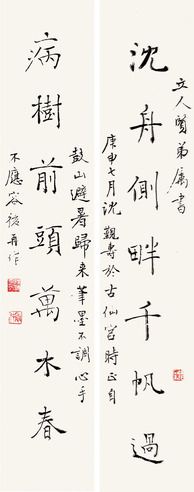 立人贤弟属书
沈舟側畔千帆過
庚申七月沈觐寿於古仙宫時正自
病樹前頭萬木春
鼓山避暑歸来筆墨不調心手
不應容後再作